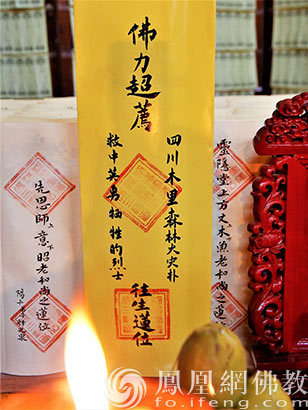 佛力超薦
四川木里森林火灾扑
救中英勇牺牲的烈士
往生蓮位
靈隱堂上方丈木魚老和尚之蓮位
先恩師上意昭老和尚之蓮位
陽上
鳳凰網佛教
fo.ifeng.com